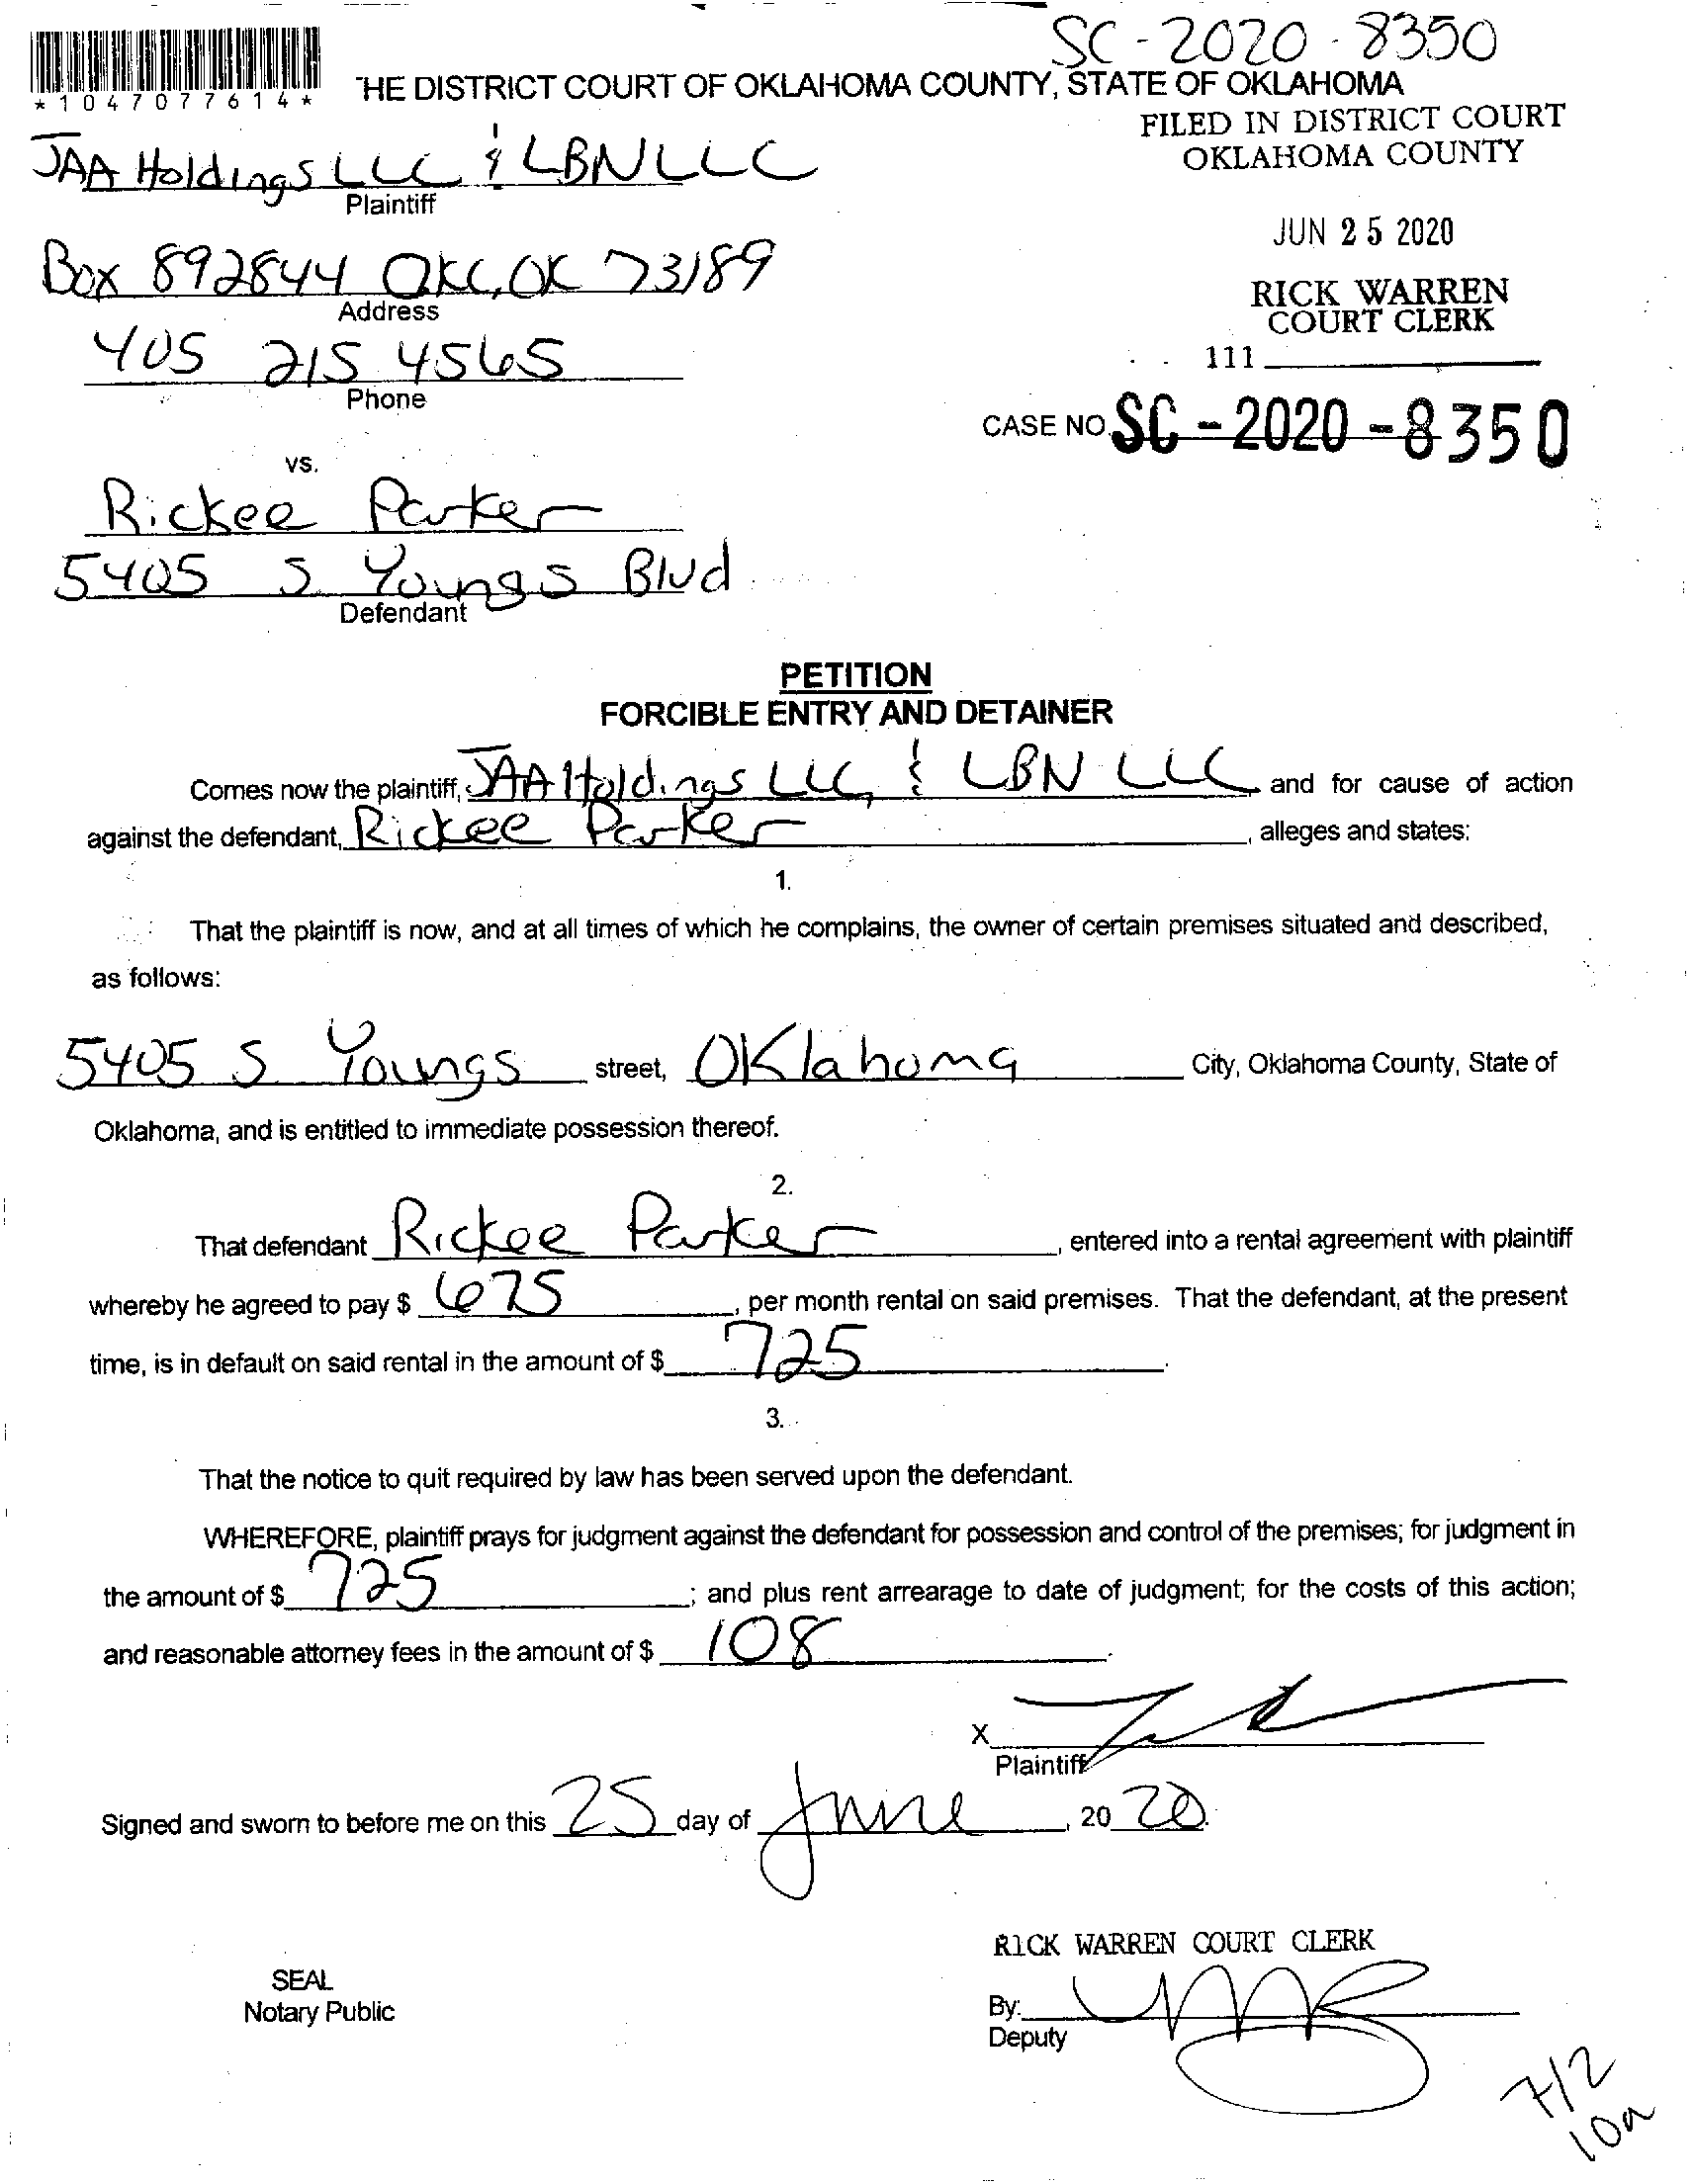 SC-2020-8350
*1047077614*
THE DISTRICT COURT OF OKLAHOMA COUNTY, STATE OF OKLAHOMA
FILED IN DISTRICT COURT
OKLAHOMA COUNTY
JAA Holdings LLC & LBN LLC
Plaintiff
JUN 25 2020
Box 892844 OKC, OK 73189
Address
RICK WARREN
COURT CLERK
405 215 4565
Phone
111
CASE NO. SC-2020-8350
vs.
Rickee Parker
5405 S. Youngs Blvd
Defendant
PETITION
FORCIBLE ENTRY AND DETAINER
Comes now the plaintiff, JAA Holdings LLC, & LBN LLC and for cause of action
against the defendant, Rickee Parker, alleges and states:
1.
That the plaintiff is now, and at all times of which he complains, the owner of certain premises situated and described,
as follows:
5405 S. Youngs street, Oklahoma City, Oklahoma County, State of
Oklahoma, and is entitled to immediate possession thereof.
2.
That defendant Rickee Parker, entered into a rental agreement with plaintiff
whereby he agreed to pay $ 675, per month rental on said premises. That the defendant, at the present
time, is in default on said rental in the amount of $ 725.
3.
That the notice to quit required by law has been served upon the defendant.
WHEREFORE, plaintiff prays for judgment against the defendant for possession and control of the premises; for judgment in
the amount of $ 725; and plus rent arrearage to date of judgment; for the costs of this action;
and reasonable attorney fees in the amount of $ 108.
X
Plaintiff
Signed and sworn to before me on this 25 day of June, 20 20.
RICK WARREN COURT CLERK
SEAL
Notary Public
By:
Deputy
7/2
10a